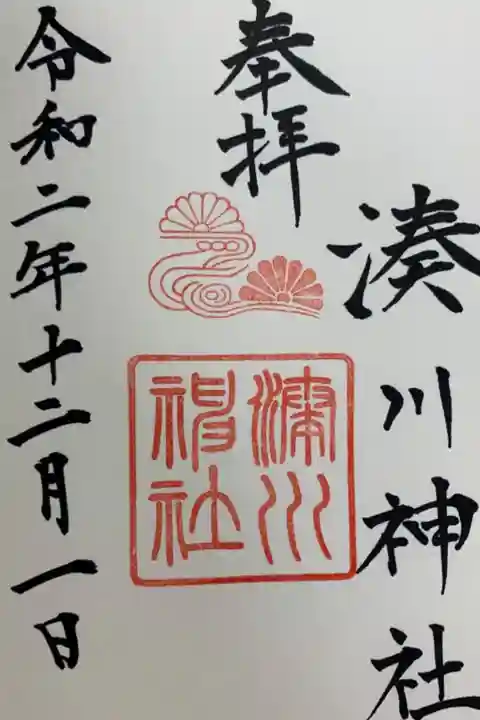 湊川神社
奉拝
湊川神社
令和二年十二月一日